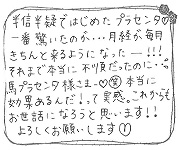 半信半疑ではじめたプラセンタ♡
一番驚いたのが、、、月経が毎月
きちんと来るようになったー！！！
それまで本当に不順だったのに・・
馬プラセンタ様さまー♡㊗本当に
妙薬あるんだ！って実感。これからも
お世話になろうと思います！！
よろしくお願いします！